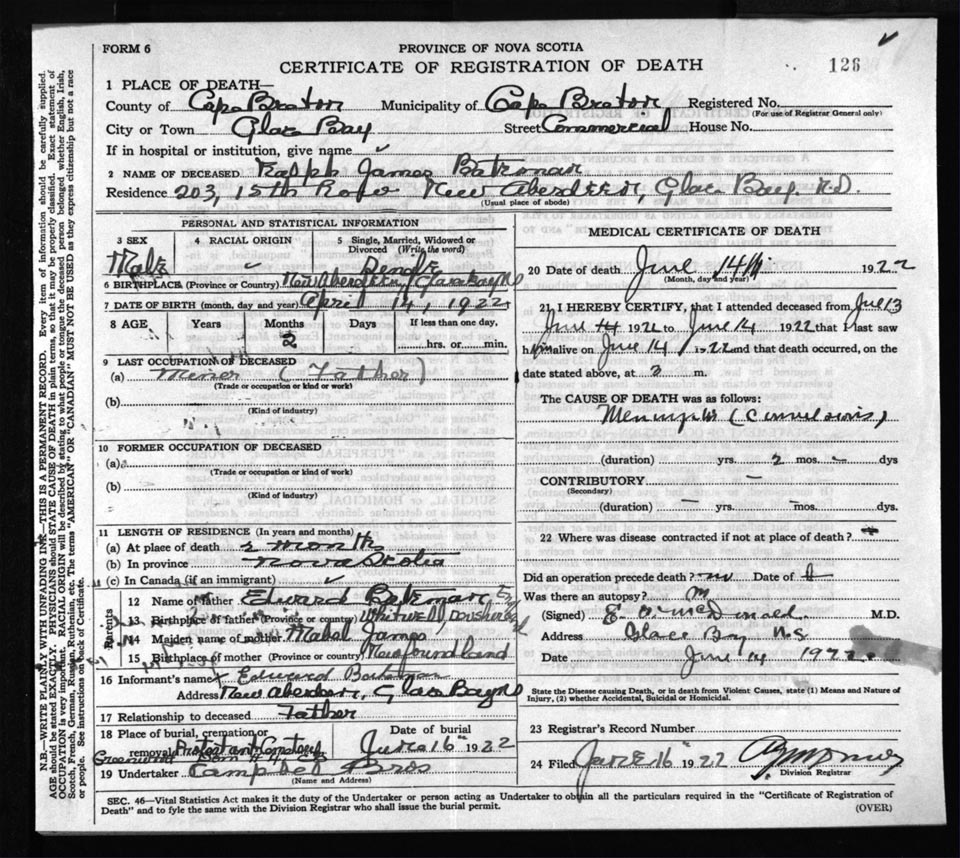 FORM 6
PROVINCE OF NOVA SCOTIA
CERTIFICATE OF REGISTRATION OF DEATH
126
1 PLACE OF DEATH—
County of Cape Breton Municipality of Cape Breton Registered No.
(For use of Registrar General only)
City or Town Glace Bay Street Commercial House No.
If in hospital or institution, give name ✓
2 NAME OF DECEASED Ralph James Bateman
Residence 203, 15th Row New Aberdeen, Glace Bay, N.S.
(Usual place of abode)
PERSONAL AND STATISTICAL INFORMATION
3 SEX 4 RACIAL ORIGIN 5 Single, Married, Widowed or Divorced (Write the word)
Male ✓ Single
6 BIRTHPLACE (Province or Country) New Aberdeen, Glace Bay NS
7 DATE OF BIRTH (month, day and year) April 14, 1922
8 AGE Years Months Days If less than one day,
2 hrs. or min.
9 LAST OCCUPATION OF DECEASED
(a) Miner (Father)
(Trade or occupation or kind of work)
(b)
(Kind of industry)
10 FORMER OCCUPATION OF DECEASED
(a)
(Trade or occupation or kind of work)
(b)
(Kind of industry)
11 LENGTH OF RESIDENCE (In years and months)
(a) At place of death 2 months
(b) In province Nova Scotia
(c) In Canada (if an immigrant) ✓
Parents
12 Name of father Edward Bateman
13 Birthplace of father (Province or country) Eng
14 Maiden name of mother Mabel James
15 Birthplace of mother (Province or country) Newfoundland
16 Informant's name x Edward Bateman
Address New Aberdeen, Glace Bay NS
17 Relationship to deceased Father
18 Place of burial, cremation or removal Protestant Cemetery Greenwood
Date of burial June 16th 1922
19 Undertaker Campbell Bros
(Name and Address)
MEDICAL CERTIFICATE OF DEATH
20 Date of death June 14th 1922
(Month, day and year)
21 I HEREBY CERTIFY, that I attended deceased from 13
June 14 192 to June 14 1922 that I last saw
him alive on June 14 1922 and that death occurred, on the
date stated above, at 2 m.
The CAUSE OF DEATH was as follows:
Meningitis (Convulsions)
(duration) yrs. 2 mos. – dys
CONTRIBUTORY –
(Secondary)
(duration) – yrs. – mos. dys.
22 Where was disease contracted if not at place of death?
Did an operation precede death? no Date of
Was there an autopsy?
(Signed) M.D.
Address Glace Bay N.S.
Date June 14 1922
State the Disease causing Death, or in death from Violent Causes, state (1) Means and Nature of
Injury, (2) whether Accidental, Suicidal or Homicidal.
23 Registrar's Record Number
24 Filed June 16th 1922
Division Registrar
SEC. 46—Vital Statistics Act makes it the duty of the Undertaker or person acting as Undertaker to obtain all the particulars required in the "Certificate of Registration of
Death" and to fyle the same with the Division Registrar who shall issue the burial permit.
(OVER)
N.B.—WRITE PLAINLY WITH UNFADING INK—THIS IS A PERMANENT RECORD. Every item of information should be carefully supplied.
AGE should be stated EXACTLY. PHYSICIANS should STATE CAUSE OF DEATH in plain terms, so that it may be properly classified. Exact statement of
OCCUPATION is very important. RACIAL ORIGIN will be described by stating to what people or tongue the deceased person belonged whether English, Irish,
Scotch, French, German, Russian, Ruthenian, etc. The terms "AMERICAN" or "CANADIAN" MUST NOT BE USED as they express citizenship but not a race
or people. See instructions on back of Certificate.